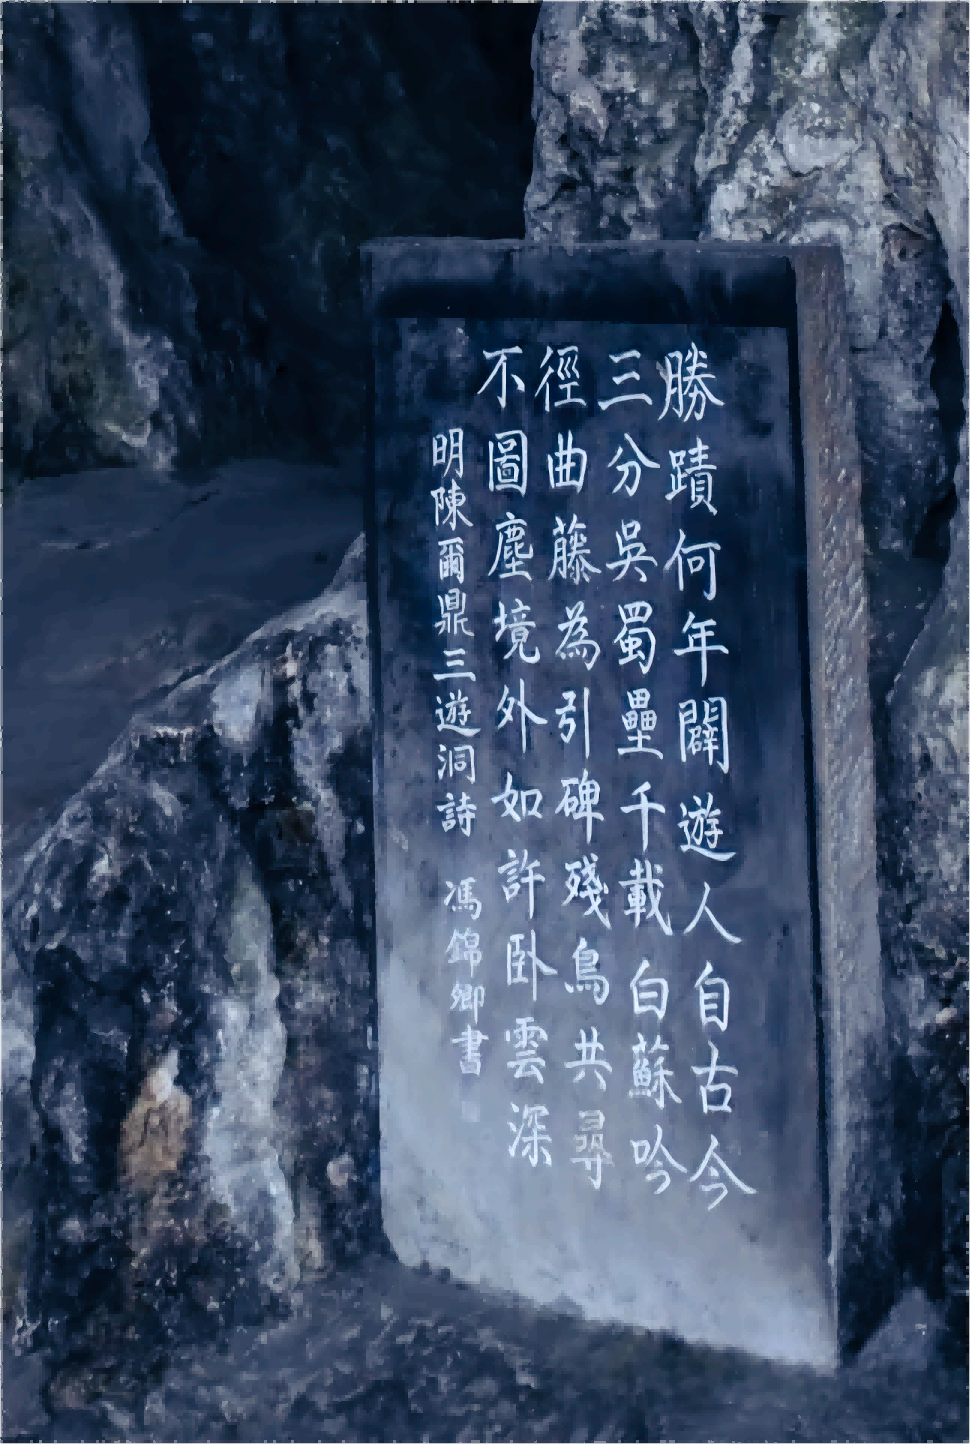 勝蹟何年闢遊人自古今
三分吳蜀壘千載白蘇吟
徑曲藤為引碑殘鳥共尋
不圖塵境外如許卧雲深
明陳爾鼎三遊洞詩 馮錦卿書